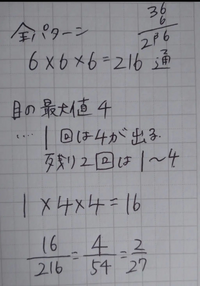 全パターン
36
6
216
6×6×6=216 通
目の最大値 4
…1回は4が出る
残り2回は1〜4
1×4×4=16
16/216=4/54=2/27